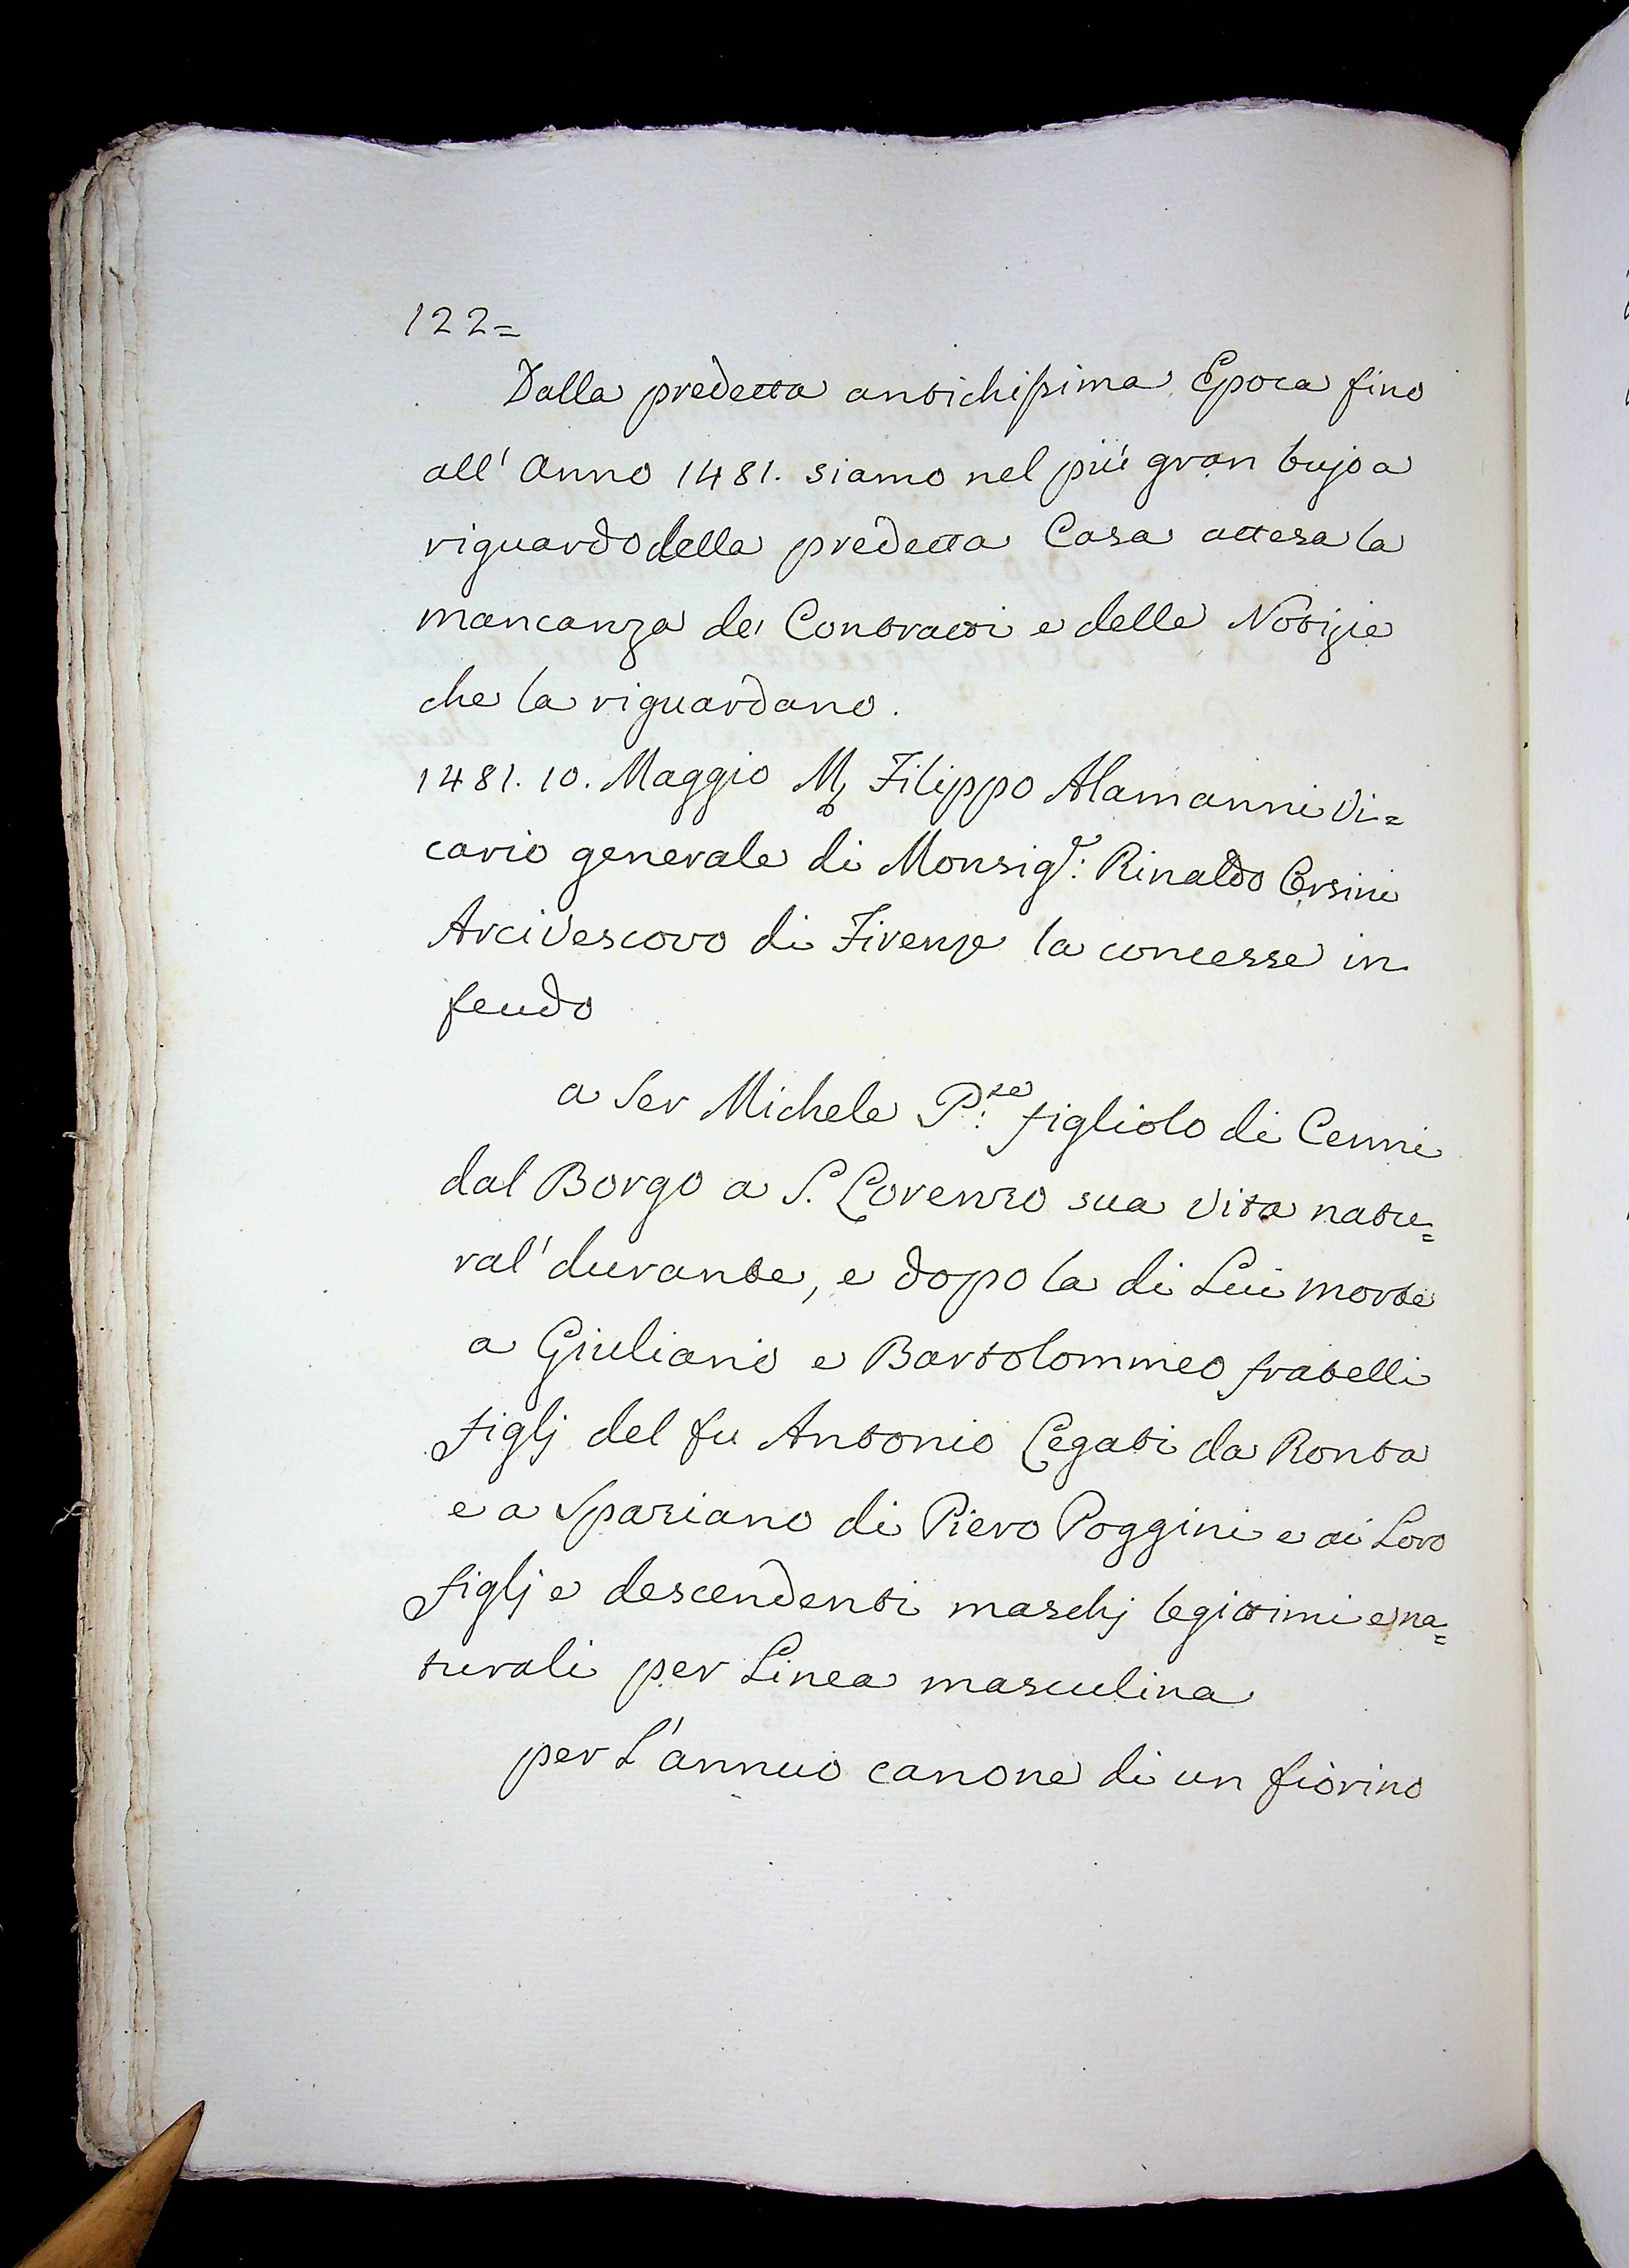 122=
Dalla predetta antichissima Epoca fino
all' Anno 1481. siamo nel più gran bujo a
riguardo della predetta Casa attesa la
mancanza de' Contratti e delle Notizie
che la riguardano.
1481. 10. Maggio M. Filippo Alamanni Vi=
cario generale di Monsig.r: Rinaldo Orsini
Arcivescovo di Firenze la concesse in
feudo
a Ser Michele P:te figliolo di Cenni
dal Borgo a S. Lorenzo sua vita natu=
ral' durante, e dopo la di Lui morte
a Giuliano e Bartolommeo fratelli
figlj del fu Antonio Legati da Ronta
e a Spaziano di Piero Poggini e ai Loro
figlj e descendenti maschj legittimi e na=
turali per Linea masculina
per L'annuo canone di un fiorino